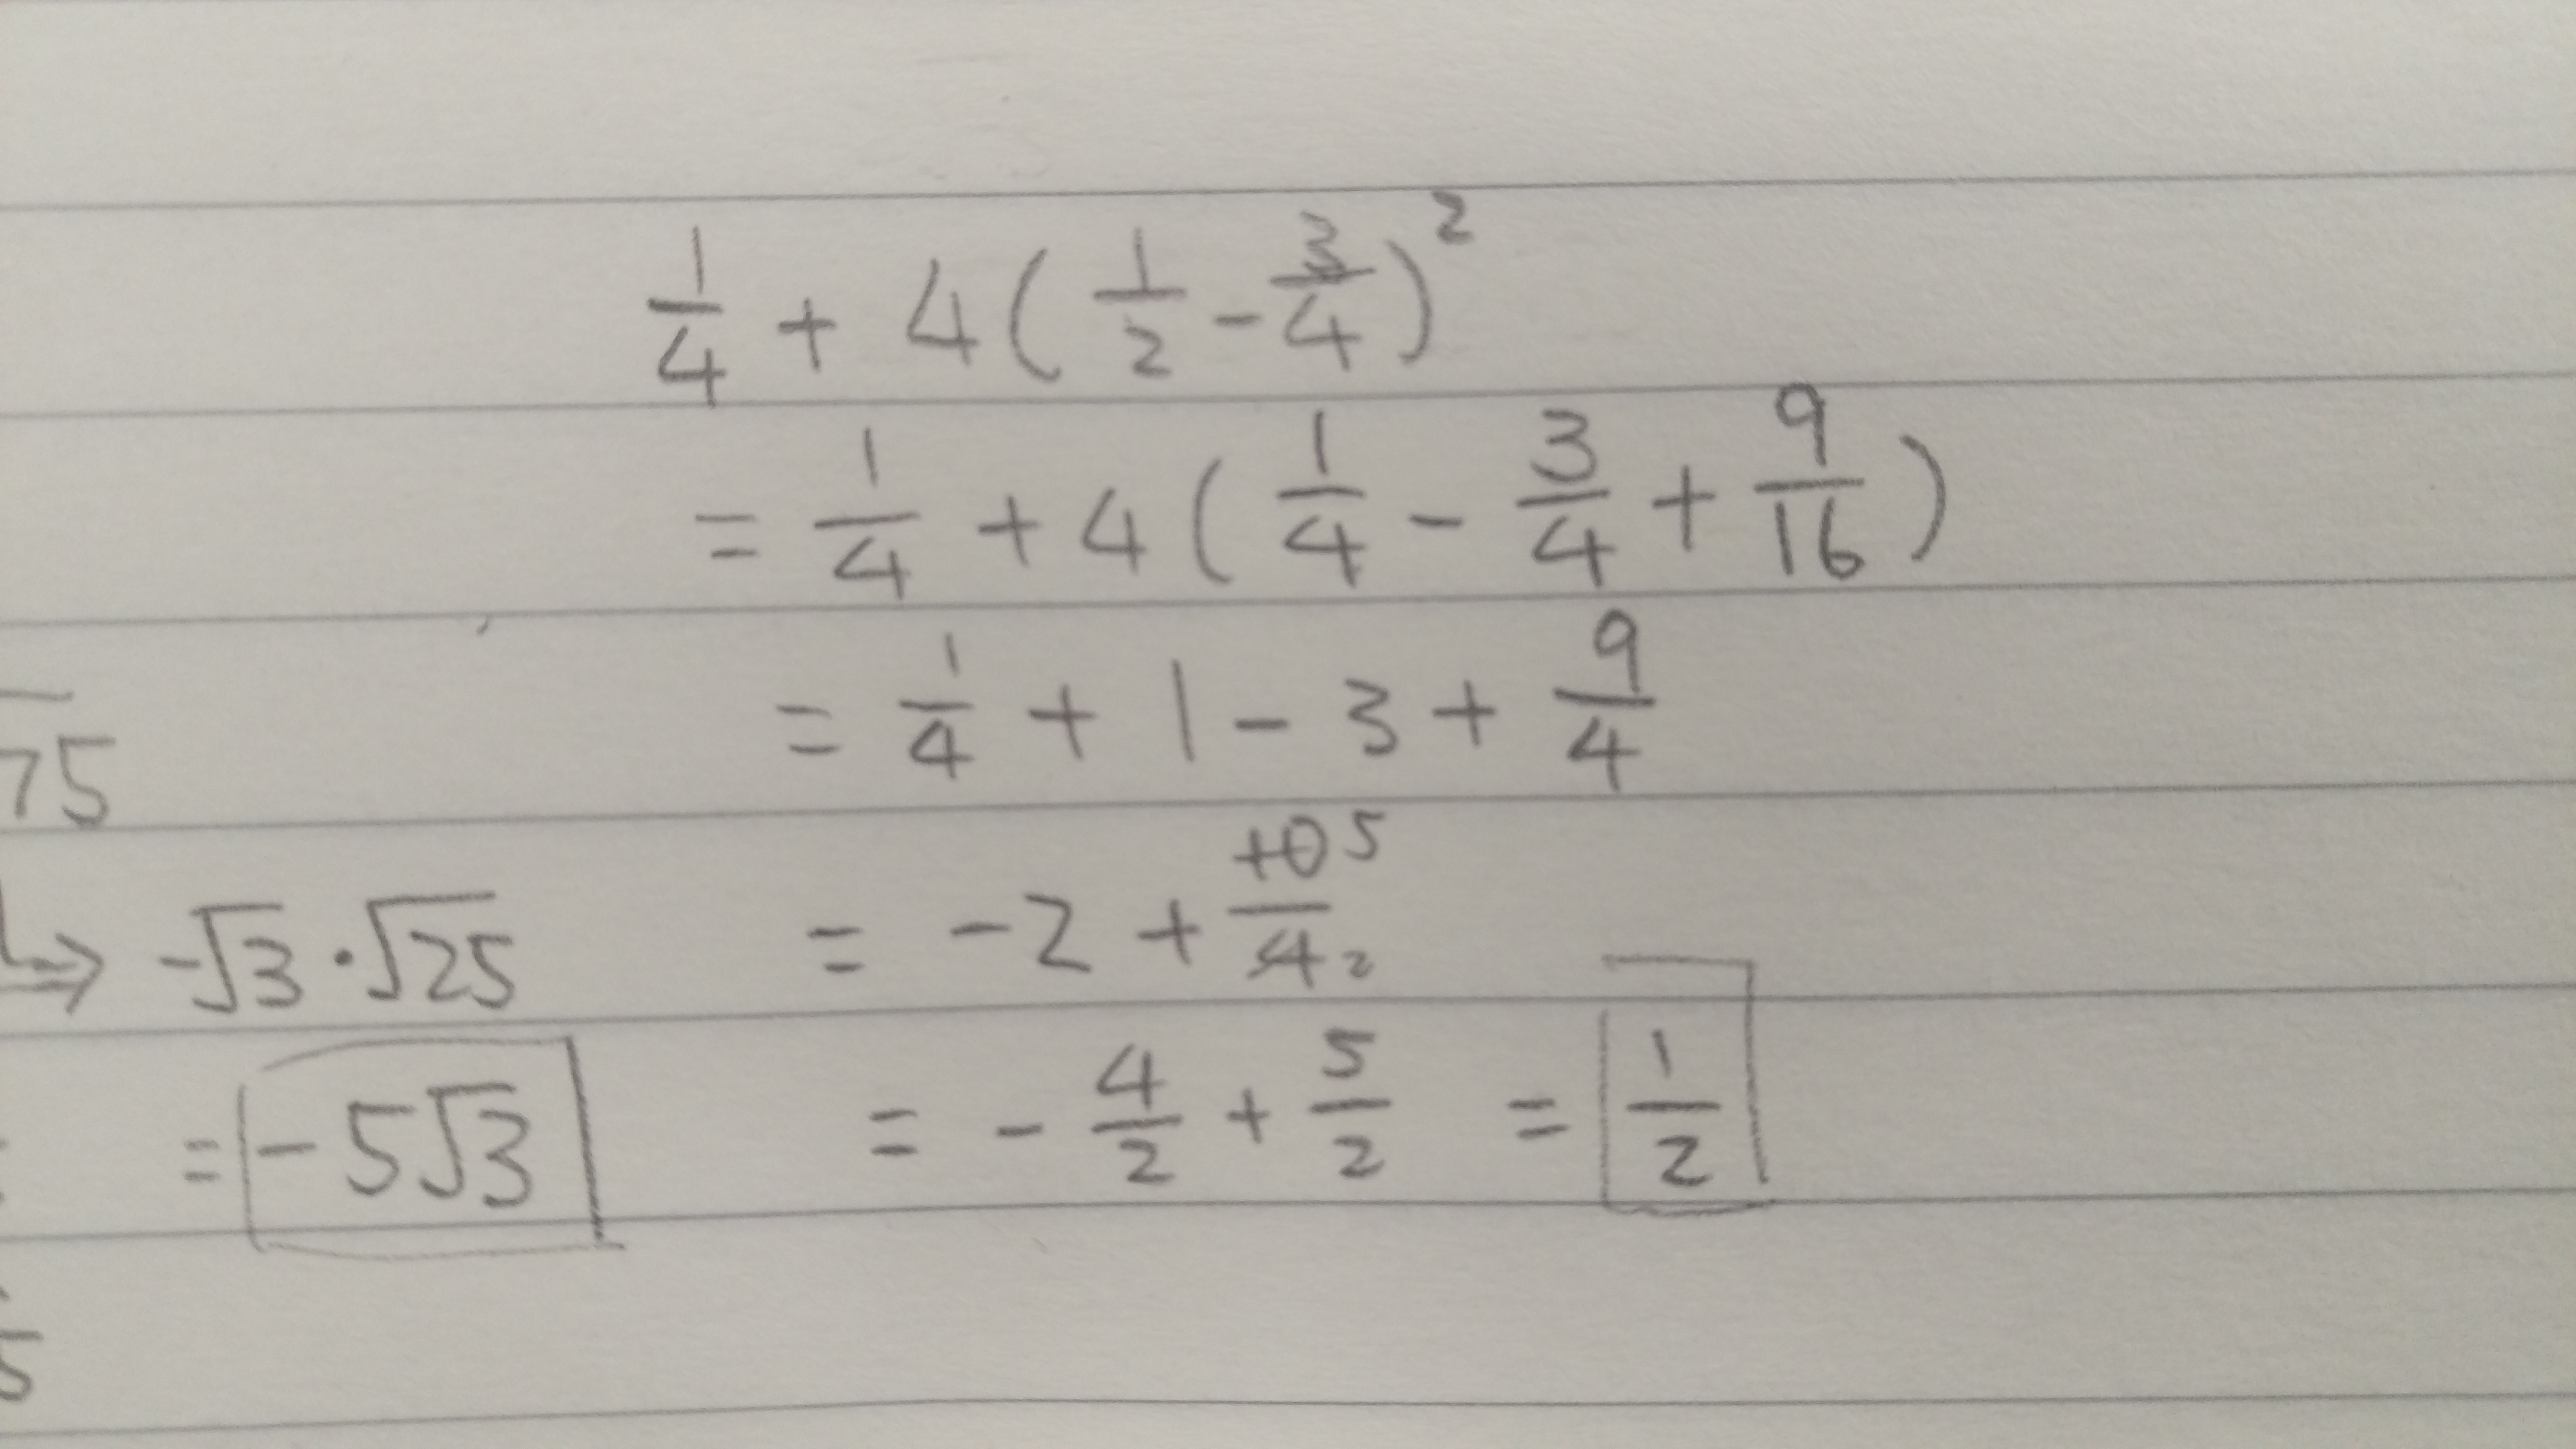 1/4 + 4(1/2 - 3/4)²
= 1/4 + 4(1/4 - 3/4 + 9/16)
= 1/4 + 1 - 3 + 9/4
= -2 + 10/4 5/2
= -4/2 + 5/2 = 1/2
75
↳ -√3 · √25
= -5√3
5